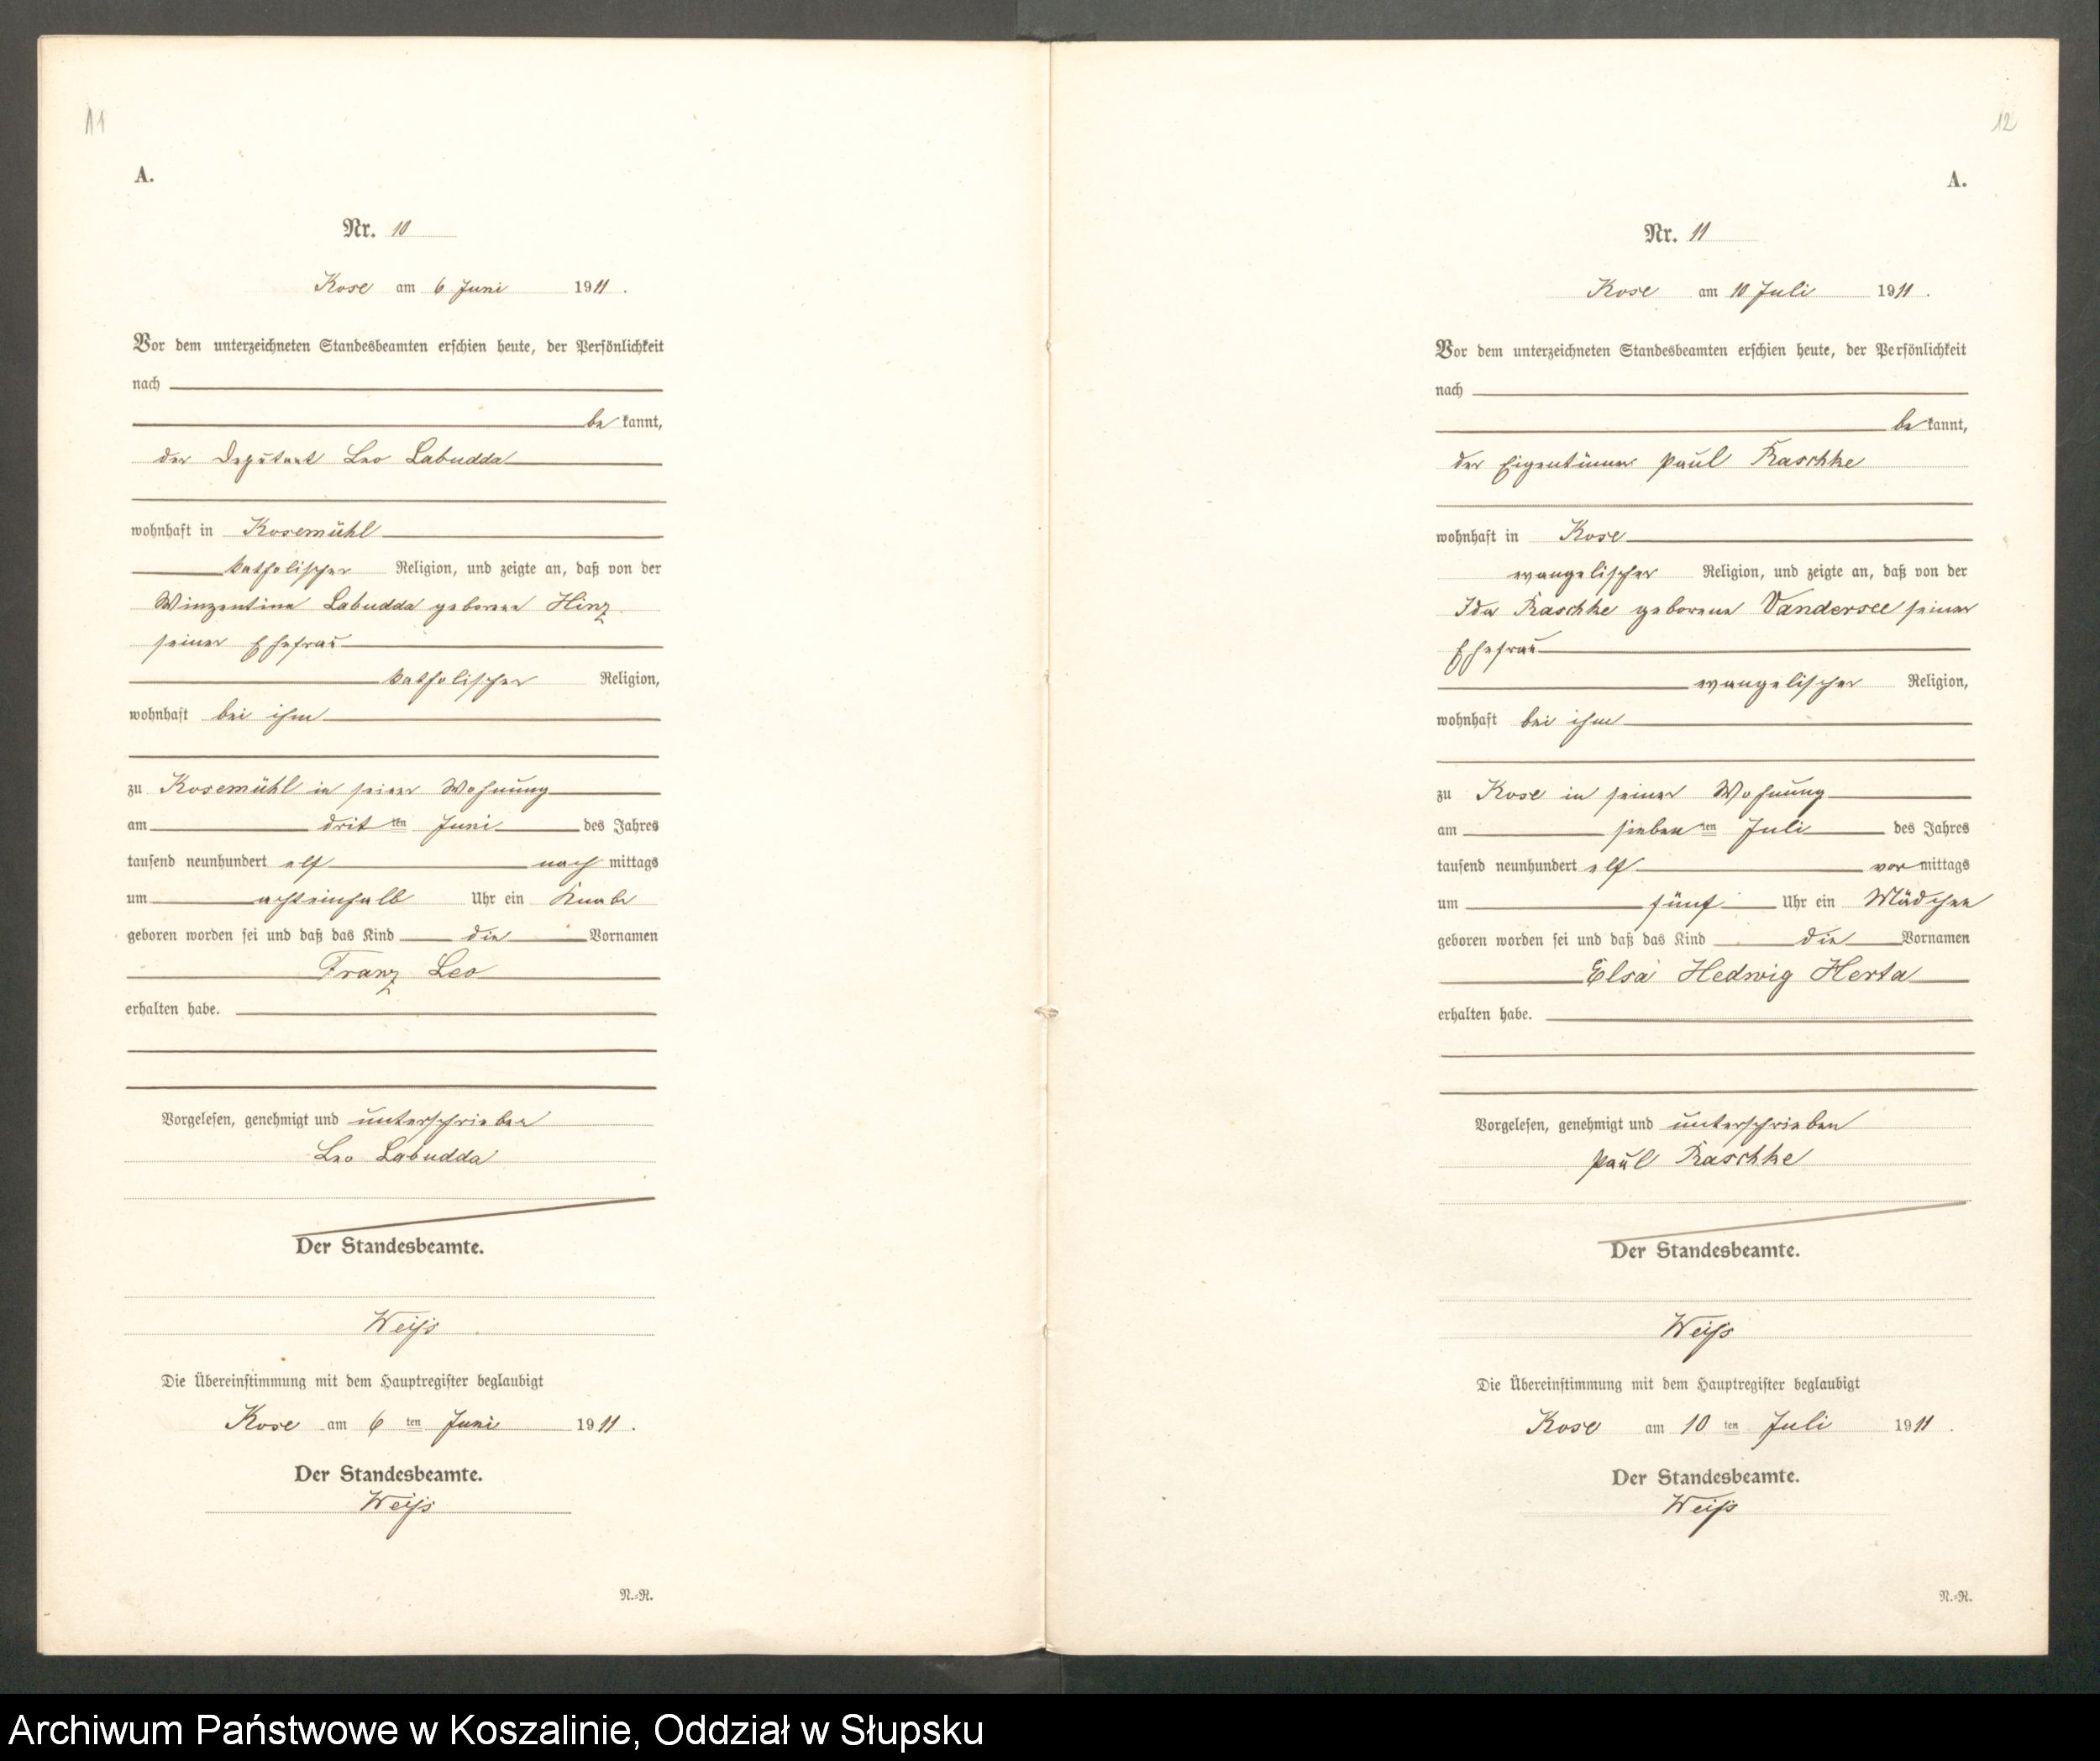 11
A.
Nr. 10
Kose am 6 Juni 1911.
Vor dem unterzeichneten Standesbeamten erschien heute, der Persönlichkeit
nach
be kannt,
der Deputant Leo Labudda
wohnhaft in Kosemühl
katholischer Religion, und zeigte an, daß von der
Winzentina Labudda geborene Hinz
seiner Ehefrau
katholischer Religion,
wohnhaft bei ihm
zu Kosemühl in seiner Wohnung
am dritten Juni des Jahres
tausend neunhundert elf nach mittags
um achteinhalb Uhr ein Knabe
geboren worden sei und daß das Kind die Vornamen
Franz Leo
erhalten habe.
Vorgelesen, genehmigt und unterschrieben
Leo Labudda
Der Standesbeamte.
Weiß
Die Übereinstimmung mit dem Hauptregister beglaubigt
Kose am 6 ten Juni 1911.
Der Standesbeamte.
Weiß
N.-R.
12
A.
Nr. 11
Kose am 10 Juli 1911.
Vor dem unterzeichneten Standesbeamten erschien heute, der Persönlichkeit
nach
be kannt,
der Eigentümer Paul Raschke
wohnhaft in Kose
evangelischer Religion, und zeigte an, daß von der
Ida Raschke geborene Vandersee seiner
Ehefrau
evangelischer Religion,
wohnhaft bei ihm
zu Kose in seiner Wohnung
am siebenten Juli des Jahres
tausend neunhundert elf vor mittags
um fünf Uhr ein Mädchen
geboren worden sei und daß das Kind die Vornamen
Elsa Hedwig Herta
erhalten habe.
Vorgelesen, genehmigt und unterschrieben
Paul Raschke
Der Standesbeamte.
Weiß
Die Übereinstimmung mit dem Hauptregister beglaubigt
Kose am 10 ten Juli 1911.
Der Standesbeamte.
Weiß
N.-R.
Archiwum Państwowe w Koszalinie, Oddział w Słupsku